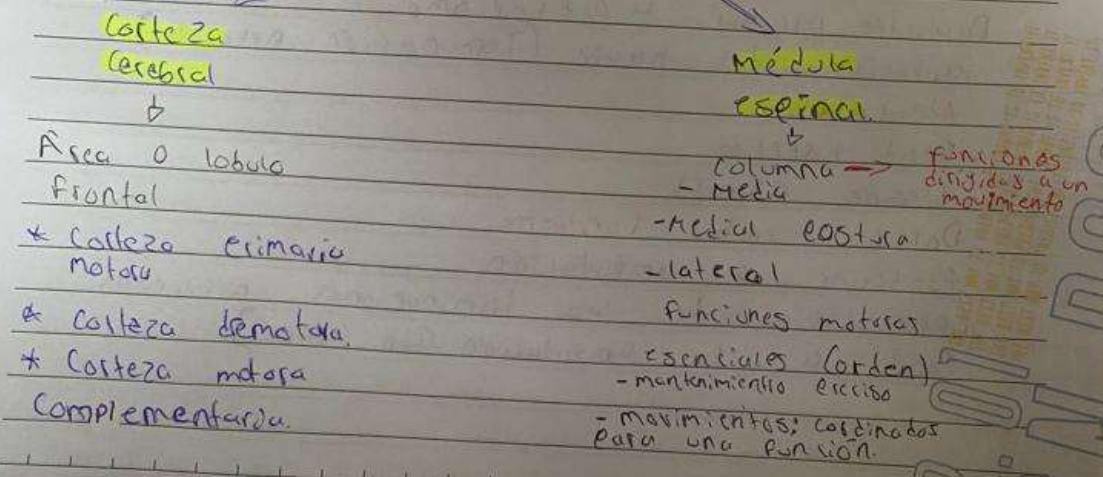 Corteza
Cerebral
Área o lobulo
frontal
* Corteza primaria
motora
* Corteza premotora.
* Corteza motora
Complementaria.
Médula
espinal
columna → funciones
dirigidas a un
movimiento
- Media
- Medial postura
- lateral
funciones motoras
esenciales (orden)
- mantenimiento preciso
- movimientos; cordinados
para una función.